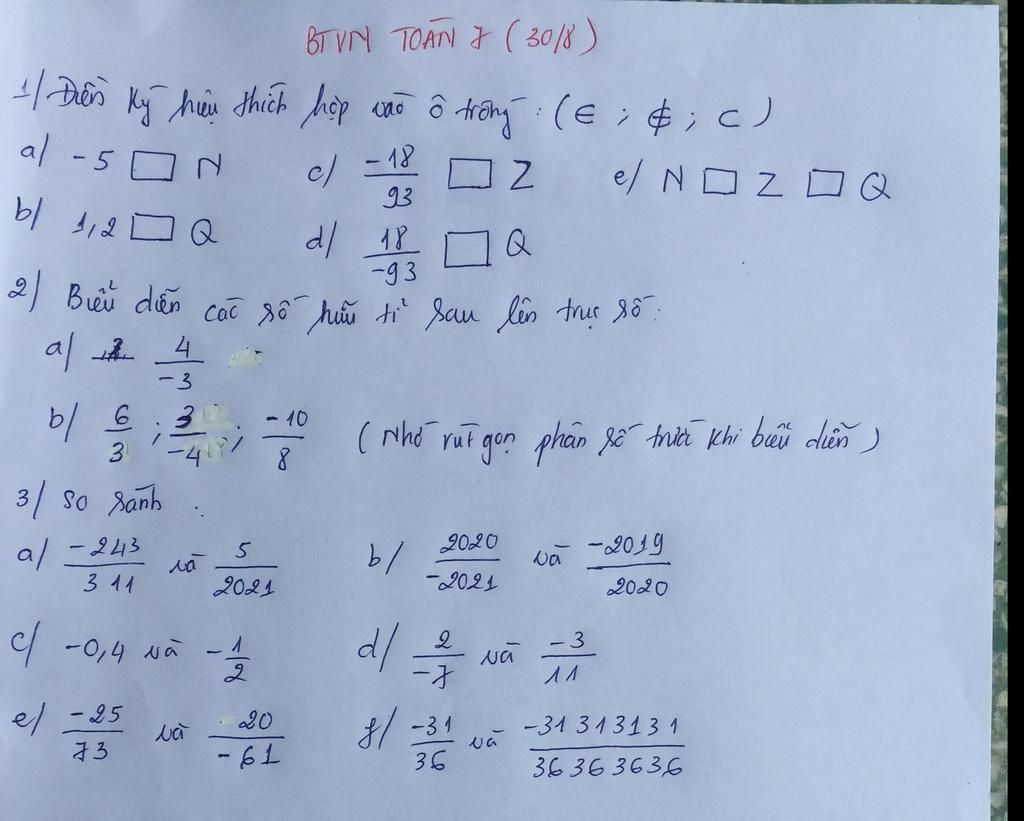 BTVN TOÁN 7 (30/8)
1/ Điền ký hiệu thích hợp vào ô trống: (∈ ; ∉ ; ⊂)
a/ -5 □ N c/ -18/93 □ Z e/ N □ Z □ Q
b/ 1,2 □ Q d/ 18/-93 □ Q
2/ Biểu diễn các số hữu tỉ sau lên trục số:
a/ 4/-3
b/ 6/3 ; 3/-4 ; -10/8 (Nhớ rút gọn phân số trước khi biểu diễn)
3/ So sánh :
a/ -243/311 và 5/2021 b/ 2020/-2021 và -2019/2020
c/ -0,4 và -1/2 d/ 2/-7 và -3/11
e/ -25/73 và 20/-61 f/ -31/36 và -31313131/36363636